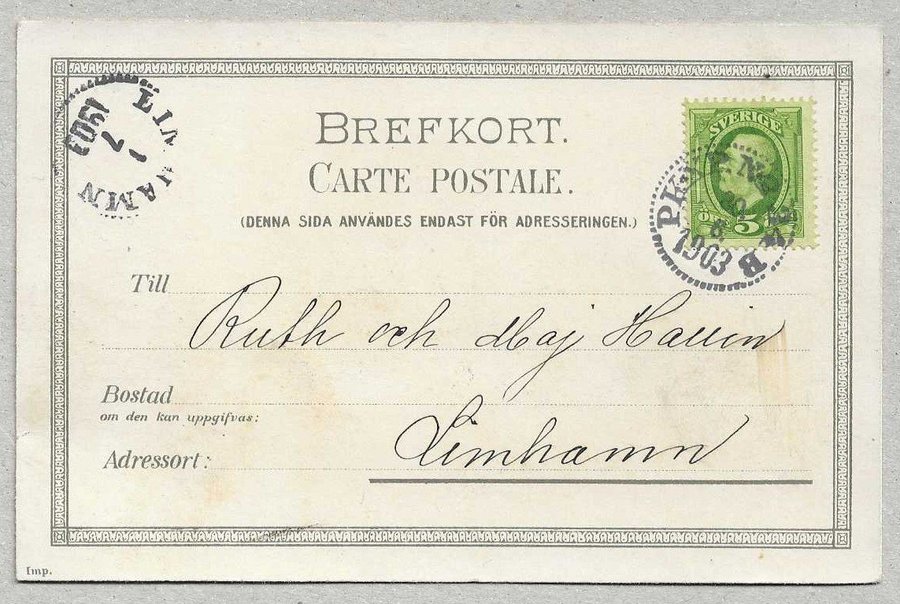 BREFKORT.
CARTE POSTALE.
(DENNA SIDA ANVÄNDES ENDAST FÖR ADRESSERINGEN.)
SVERIGE
5
PKXP N
1903
1903
7
HAMN
Till
Ruth och Maj Hallin
Bostad
om den kan uppgifvas:
Adressort:
Limhamn
Imp.